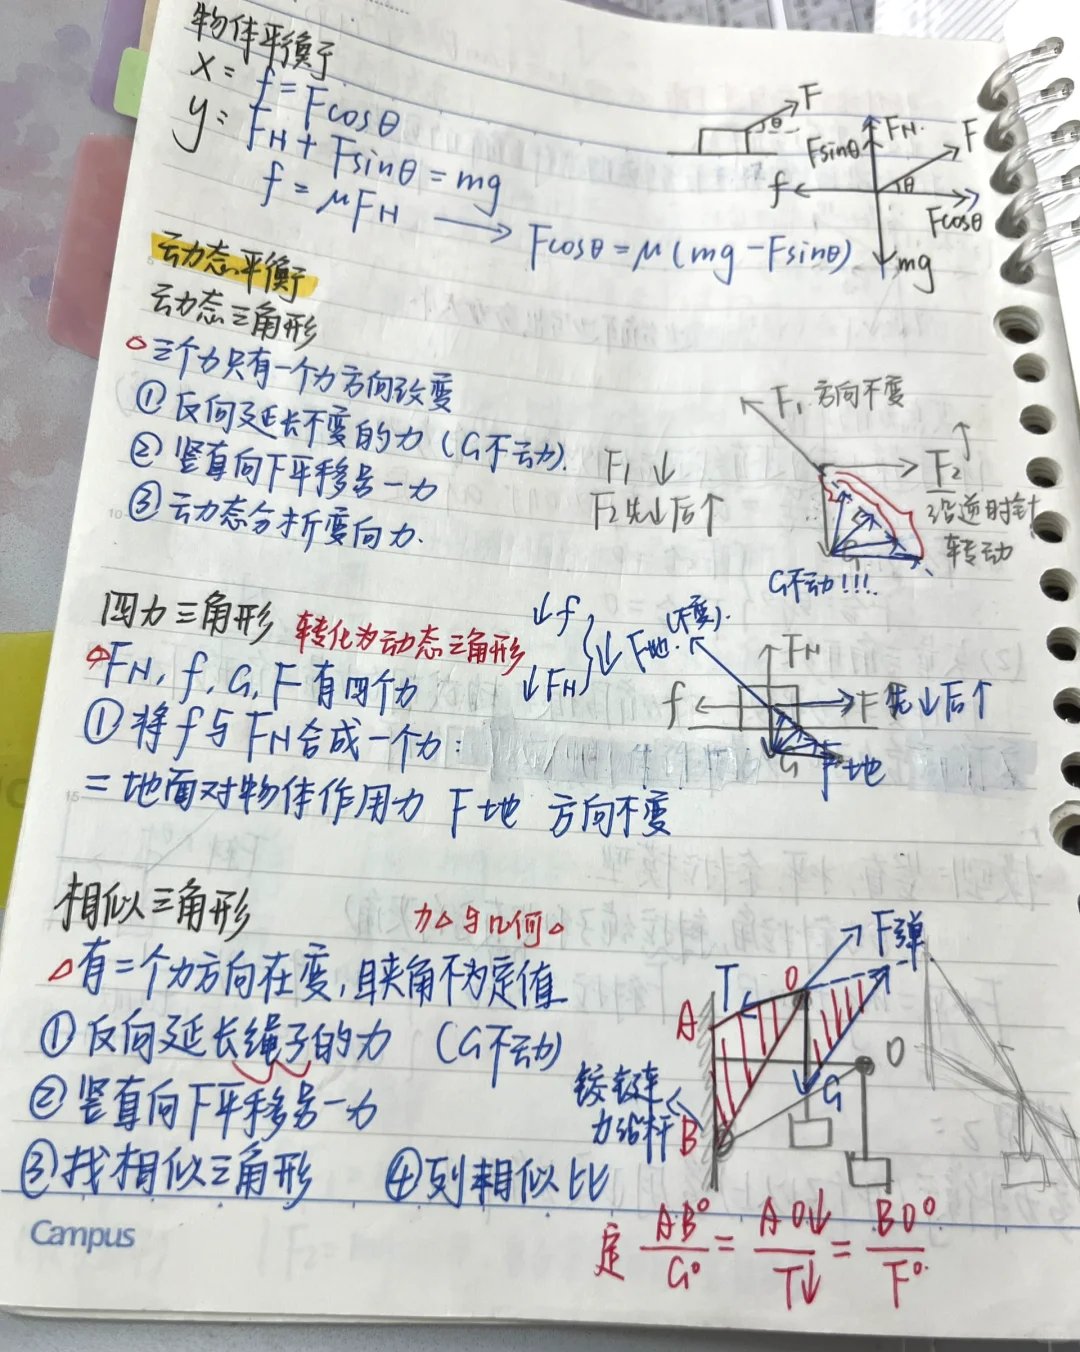 物体平衡于
x= f=Fcosθ
y: FN+Fsinθ=mg
f=μFN → Fcosθ=μ(mg-Fsinθ)
F
θ
FN
Fsinθ
F
f
θ
Fcosθ
mg
动态平衡
动态三角形
三个力只有一个力方向改变
①反向延长不变的力(G不动).
②竖直向下平移另一力
③动态分析变向力.
F₁↓
F₂先↓后↑
F₁方向不变
F₂
沿逆时针
转动
G不动!!!
四力三角形 转化为动态三角形
FN, f, G, F有四个力
①将f与FN合成一个力:
=地面对物体作用力 F地 方向不变
↓f
↓FN
↓F地.(不变).
FN
f
F先↓后↑
G
F地
相似三角形 力△与几何△
有二个力方向在变,且夹角不为定值
①反向延长绳子的力 (G不动)
②竖直向下平移另一力
③找相似三角形 ④列相似比
F弹
T
O
A
O
G
铰链
力沿杆
B
定 AB°/G° = AO↓/T↓ = BO°/F°
Campus